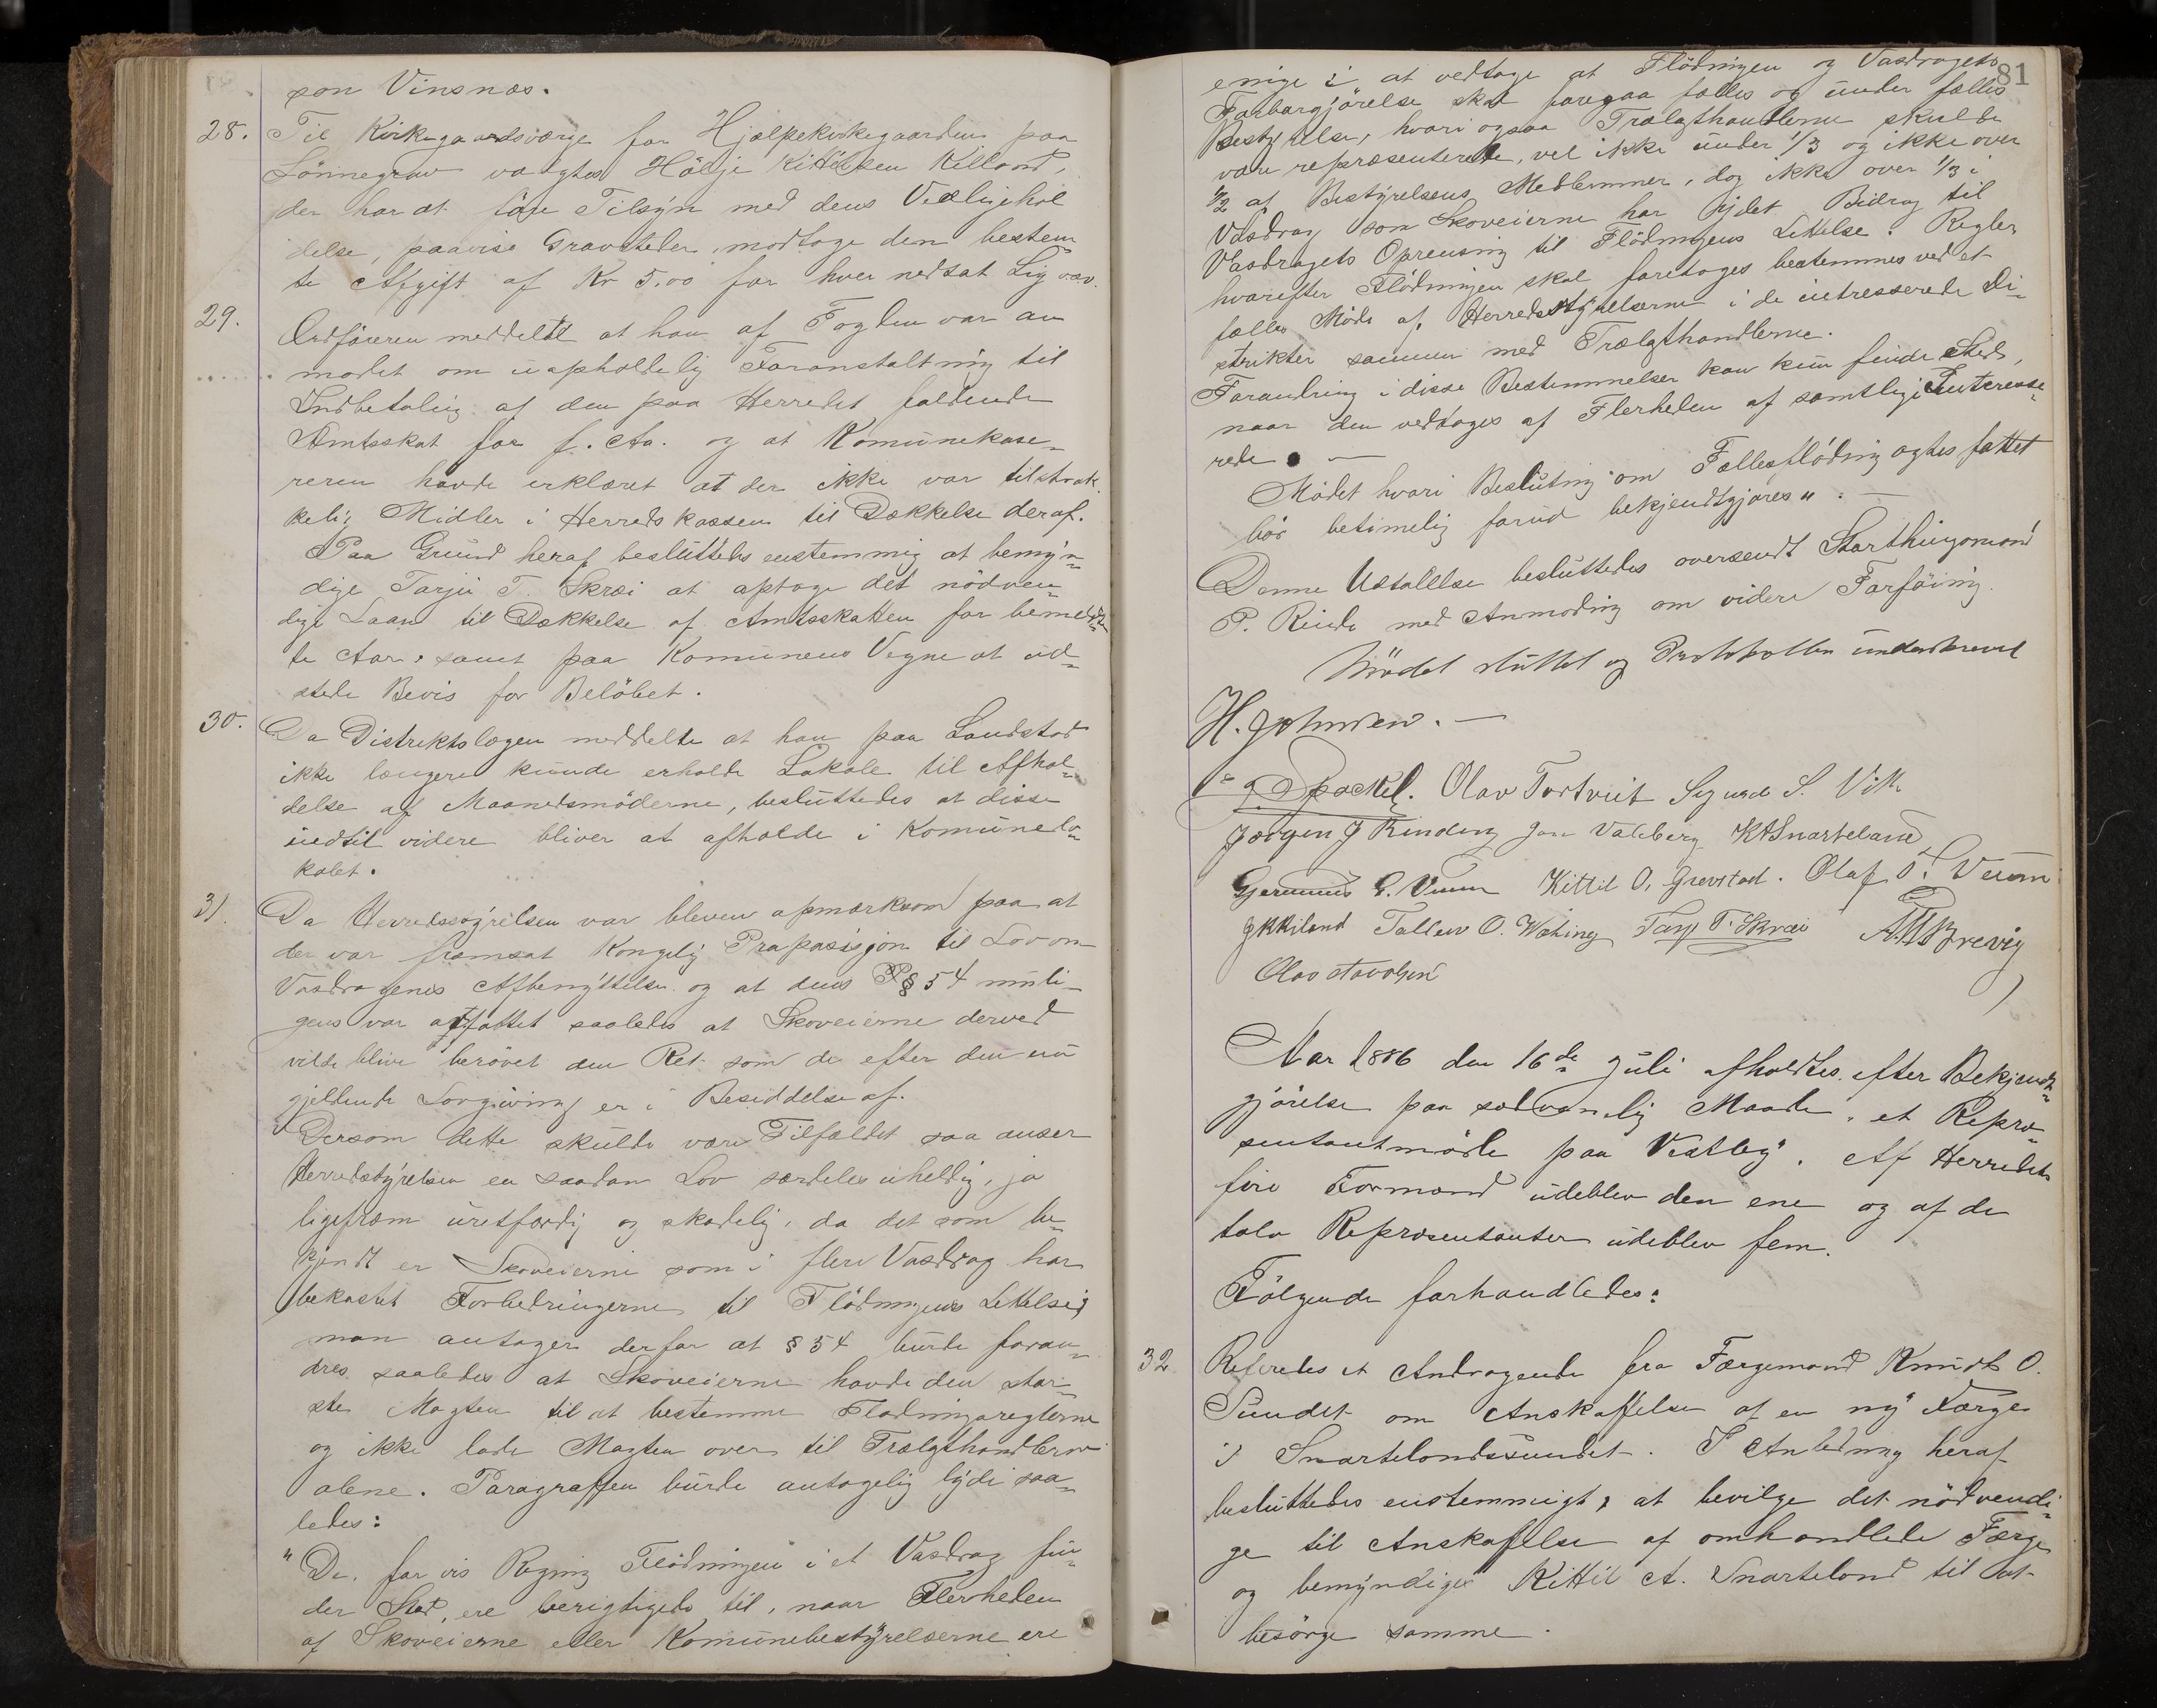 son Vinsnæs.
28. Til Kirkegaardsværge for Hjælpekirkegaarden paa
Lönnegrav valgtes Hölje Kittilsen Killand,
der har at före Tilsyn med dens Vedligehol
delse, paavise Gravsteder, modtage den bestem
te Afgift af Kr 5,00 for hver nedsat Lig o.s.v.
29. Ordföreren meddelte at han af Fogden var an
modet om uopholdelig Foranstaltning til
Indbetaling af den paa Herredet faldende
Amtsskat for f. Aa. og at Komunekase-
reren havde erklæret at der ikke var tilstræk
kelig Midler i Herredskassen til Dækkelse deraf.
Paa Grund heraf besluttedes enstemmig at bemyn-
dige Tarjei T. Skræi at optage det nödven-
dige Laan til Dækkelse af Amtsskatten for bemeld-
te Aar, samt paa Komunens Vegne at ud-
stede Bevis for Belöbet.
30. Da Distriktslægen meddelte at han paa Landstad
ikke længere kunde erholde Lokale til Afhol-
delse af Maanedsmöderne, besluttedes at disse
indtil videre bliver at afholde i Komunelo-
kalet.
31. Da Herredsstyrelsen var bleven opmærksom paa at
der var fremsat Kongelig Proposisjon til Lov om
Vasdragenes Afbenyttelse og at dens § 54 muli-
gens var affattet saaledes at Skoveierne derved
vilde blive berövet den Ret som de efter den nu
gjeldende Lovgivning er i Besiddelse af.
Dersom dette skulde være Tilfældet saa anser
Herredstyrelsen en saadan Lov særdeles uheldig, ja
ligefrem uretfærdig og skadelig, da det som be-
kjendt er Skoveierne som i flere Vasdrag har
bekostet Forbedringerne til Flödningens Lettelse;
man antager derfor at § 54 burde foran-
dres saaledes at Skoveierne havde den stör-
ste Magten til at bestemme Flödningsreglerne
og ikke lade Magten over til Trælasthandlerne
alene. Paragraffen burde antagelig lyde saa-
ledes:
"De, for vis Regning Flödningen i et Vasdrag fin-
der Sted, ere berigtigede til, naar Flerheden
af Skoveierne eller Komunebestyrelserne ere
81
enige i at vedtage at Flödningen og Vasdragets
Farbargjörelse skal foregaa fælles og under fælles
Bestyrelse, hvori ogsaa Trælasthandlerne skulde
være repræsenterede, vel ikke under 1/3 og ikke over
1/2 af Bestyrelsens Medlemmer, dog ikke over 1/3 i
Vasdrag som Skoveierne har ydet Bidrag til
Vasdragets Oprensning til Flödningens Lettelse. Regler
hvorefter Flödningen skal foretages bestemmes ved et
fælles Möde af Herredsstyrelserne i de intresserede Di-
strikter sammen med Trælasthandlerne.
Forandring i disse Bestemmelser kan kun finde Sted,
naar den vedtages af Flerheden af samtlige Interesse-
rede. —
Mödet hvori Beslutning om Fællesflöding agtes fattet
bör betimelig forud bekjendtgjöres". —
Denne Udtalelse besluttedes oversendt Storthingsmand
P. Rinde med Anmodning om videre Forföining.
Mödet sluttet og Protokollen underskrevet
H. Johnsen. —
J. Spockel. Olav Tortveit Sigurd S. Vik
Jörgen J Rinden Jon Valeberg KASnarteland
Gjermund G. Veum Kittil O. Grevstad. Olaf T. Veum
JKKiland Tallev O. Wæhing Tarj. T. Skræi A.M.Brevig
Olav Stavolsen
Aar 1886 den 16de Juli afholdtes efter Bekjendt-
gjörelse paa sedvanlig Maade, et Repræ-
sentantmöde paa Vestby. Af Herredets
fire Formænd udeblev den ene og af de
tolv Repræsentanter udeblev fem.
Fölgende forhandledes:
32 Refereredes et Andragende fra Færgemand Knudt O.
Sundet om Anskaffelse af en ny Færge
i Snartelandssundet. I Anledning heraf
besluttedes enstemmigt, at bevilge det nödvendi-
ge til Anskaffelse af omhandlede Færge
og bemyndiges Kittil A. Snarteland til at
besörge samme.